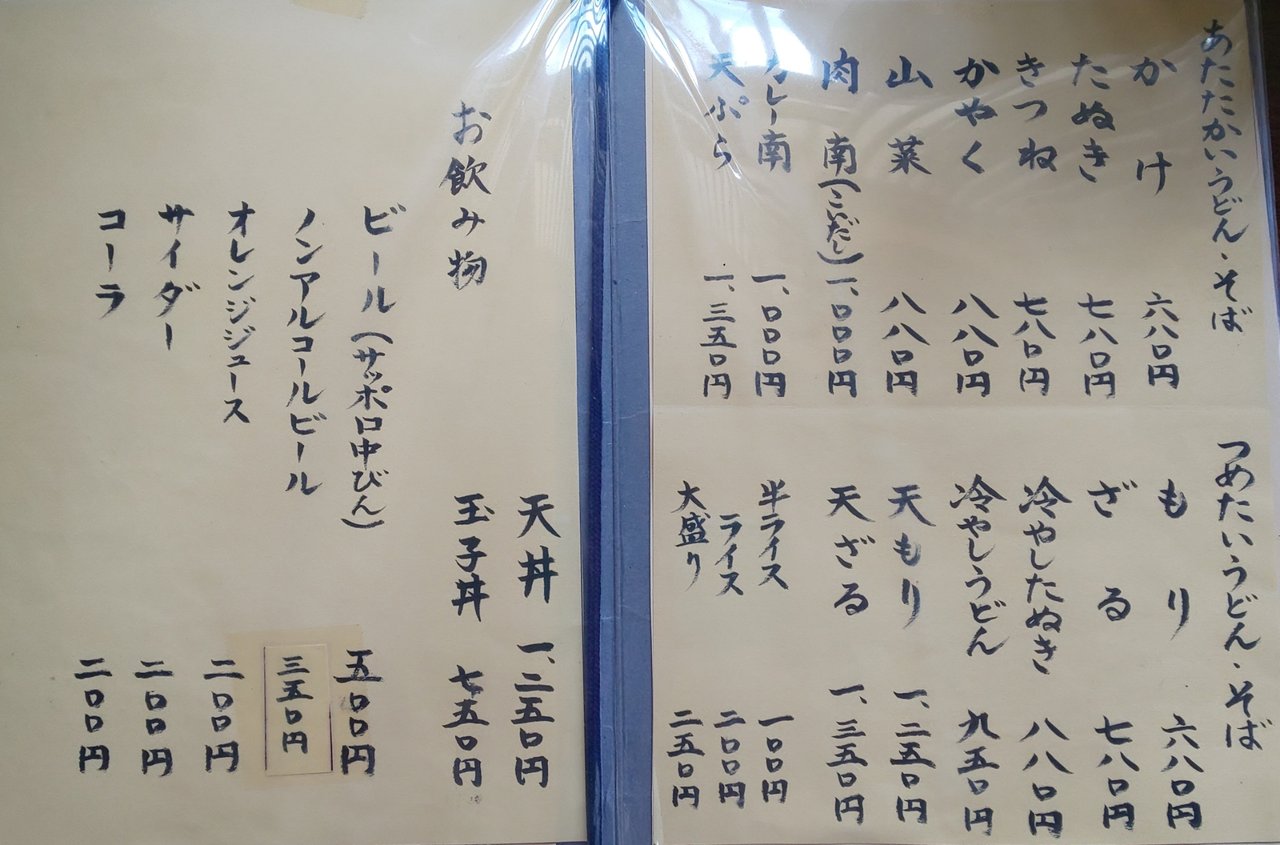 あたたかいうどん・そば
かけ 六八〇円
たぬき 七八〇円
きつね 七八〇円
かやく 八八〇円
山菜 八八〇円
肉南(こいだし) 一、〇〇〇円
カレー南 一、〇〇〇円
天ぷら 一、三五〇円
つめたいうどん・そば
もり 六八〇円
ざる 七八〇円
冷やしたぬき 八八〇円
冷やしうどん 九五〇円
天もり 一、二五〇円
天ざる 一、三五〇円
半ライス 一〇〇円
ライス 二〇〇円
大盛り 二五〇円
天丼 一、二五〇円
玉子丼 七五〇円
お飲み物
ビール(サッポロ中びん) 五〇〇円
ノンアルコールビール 三五〇円
オレンジジュース 二〇〇円
サイダー 二〇〇円
コーラ 二〇〇円